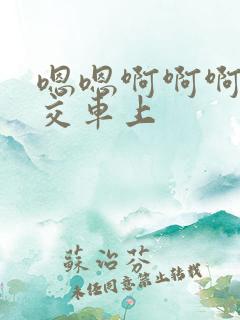 嗯嗯啊啊啊
交车上
苏治芬
未经同意禁止转载